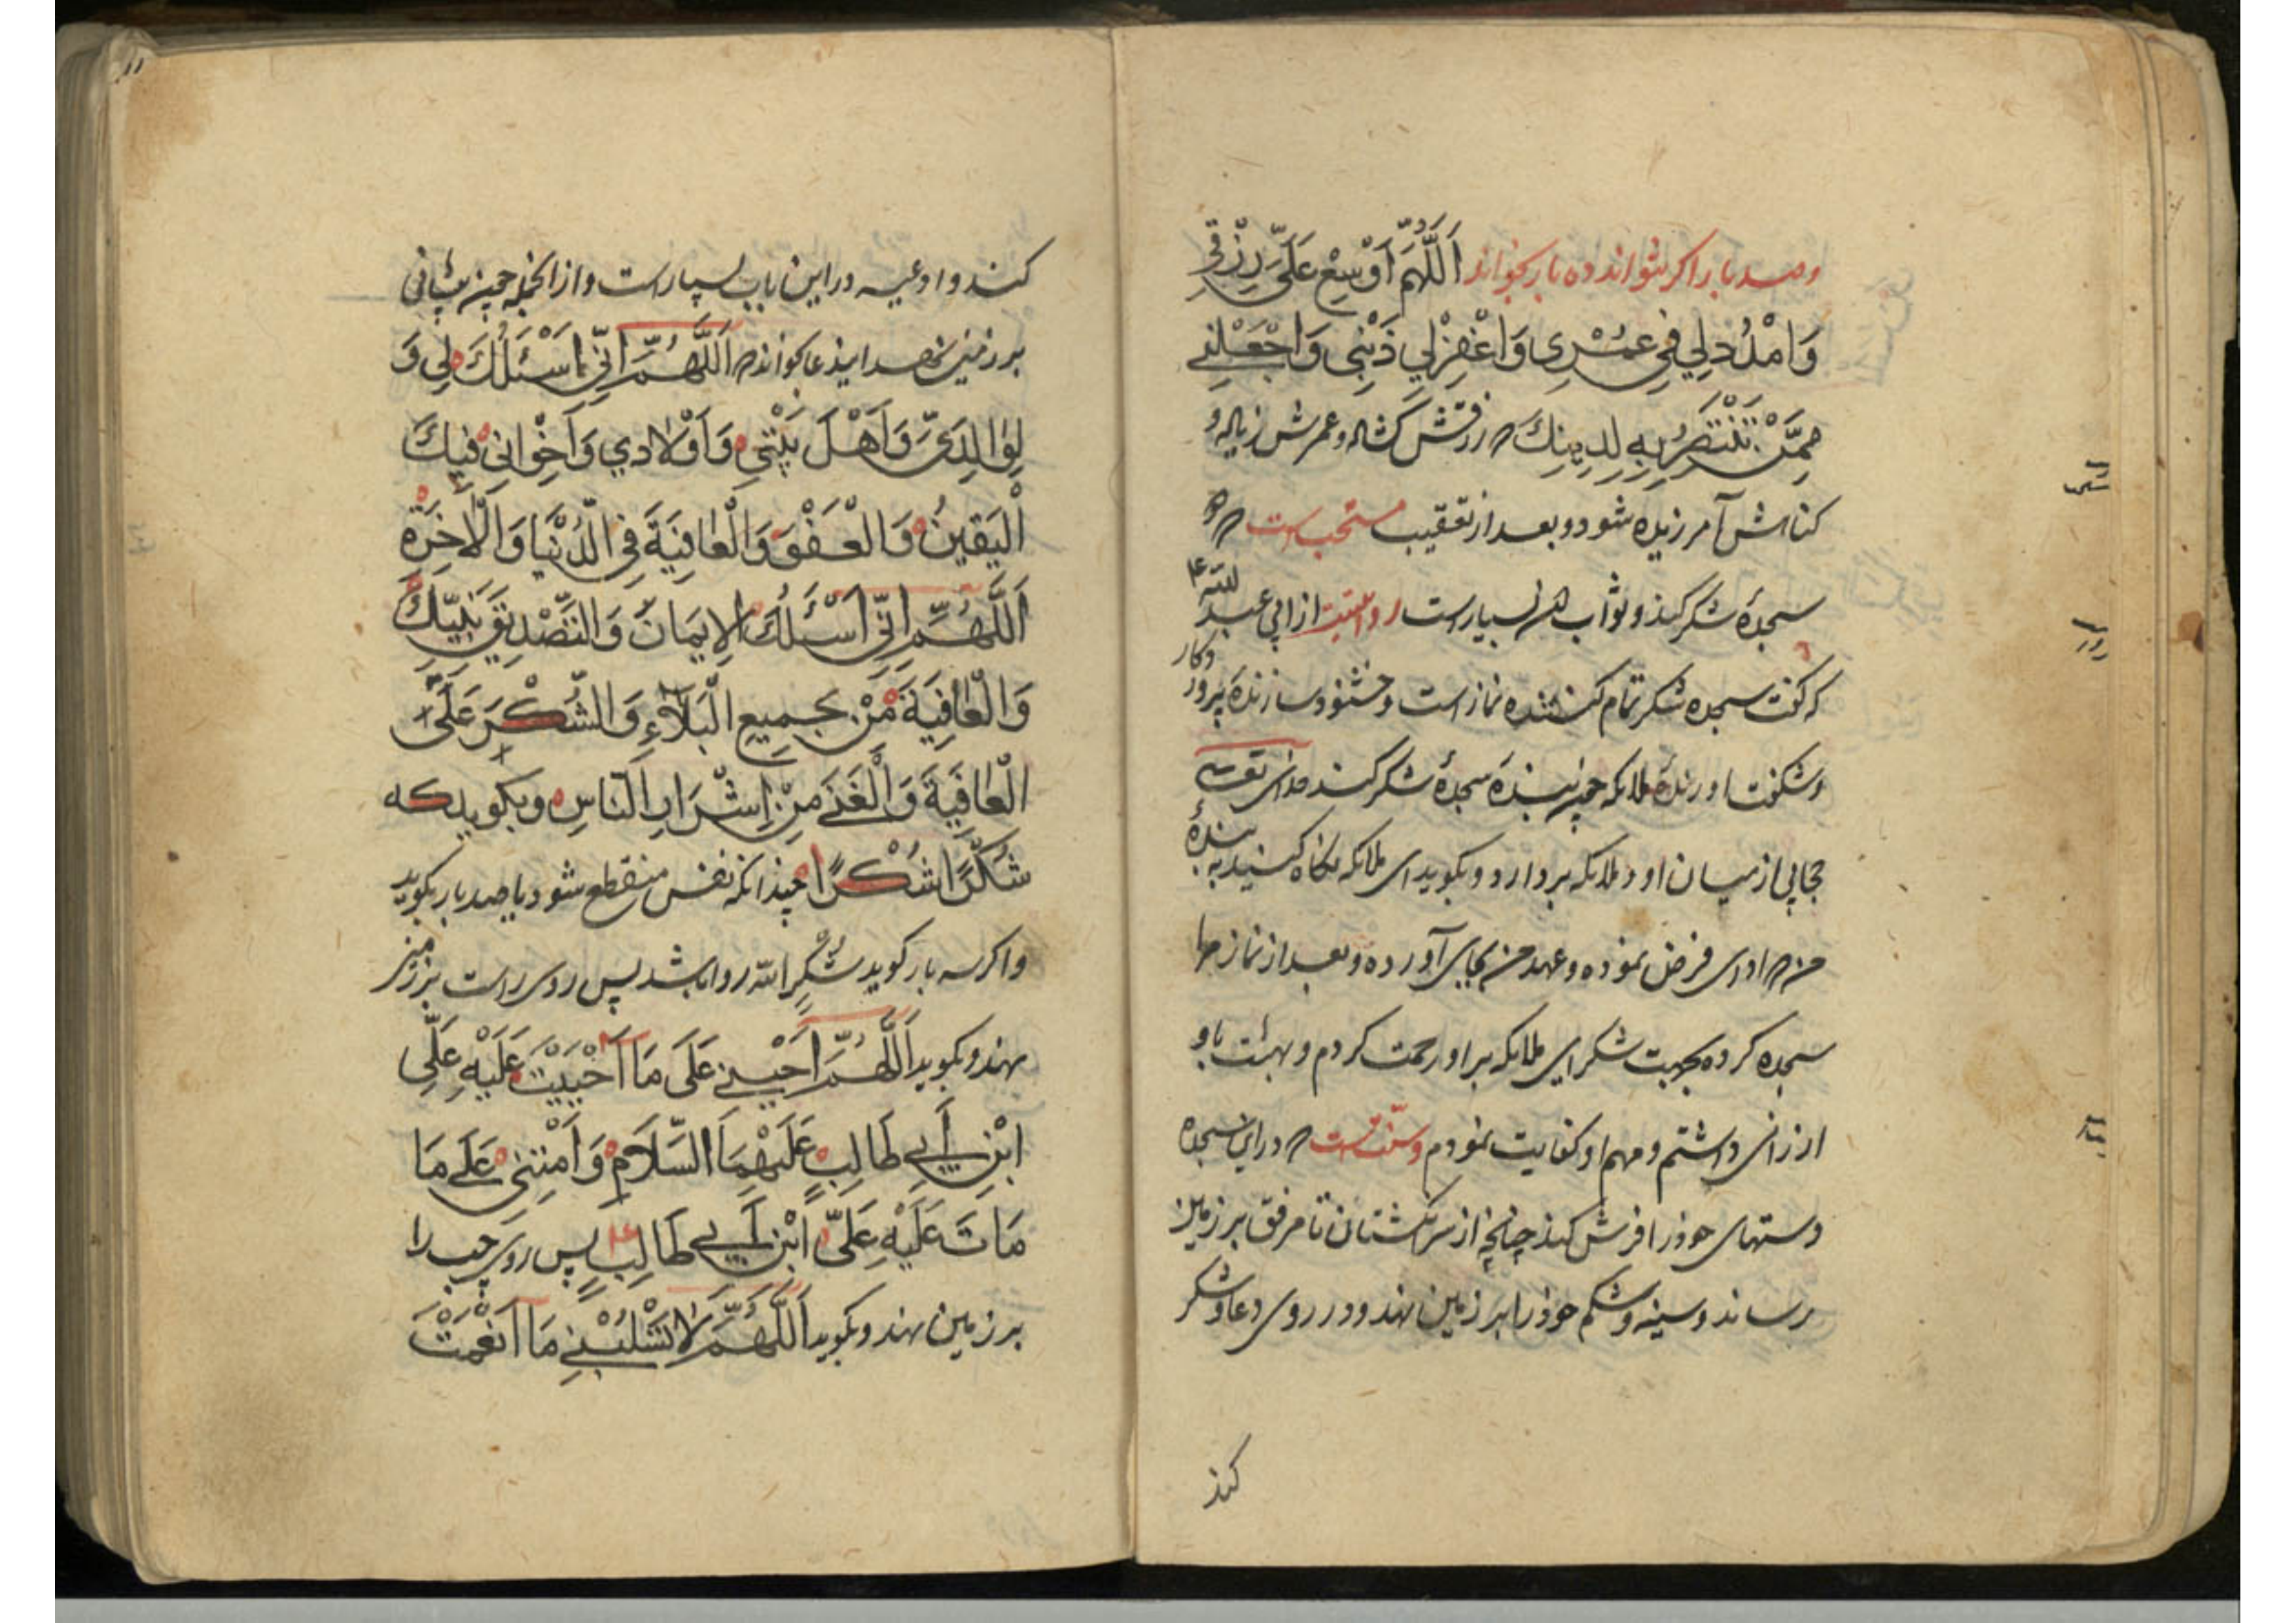 وصد بار اکر بتواند ده بار بخواند اَللّٰهُمَّ اَوْسِعْ عَلَیَّ رِزْقِی
وَامْدُدْ لِي فِي عُمْرِی وَاغْفِرْلِي ذَنْبِی وَاجْعَلْنِي
مِمَّنْ تَنْتَصِرُ بِهِ لِدِینِكَ رزقش کشاده وعمرش زیاده و
کناهش آمرزیده شود و بعد از تعقیب مستحب است
سجدهٔ شکر کند و ثواب بسیار است روایتست از ابی عبد الله ع
که کفت سجده شکر تمام کننده نماز است و خشنود سازنده پرورد کار
وشکفت اورنده ملائکه چون بنده سجدهٔ شکر کند خدای تعالی
حجابی از میان او و ملائکه بردارد و بکوید ای ملائکه نکاه کنید به بندهٔ
من ادای فرض نموده و عهد من بجای آورده و بعد از نماز مرا
سجده کرده بجهت شکر ای ملائکه بر او رحمت کردم و بهشت باو
ارزانی داشتم و مهم او کفایت نمودم وسنتست در این سجده
دستهای خود را فرش کند چنانچه از سر انکشتان تا مرفق بر زمین
رساند و سینه و شکم خود را بر زمین نهد و در روی دعا و شکر
کند
کند و ادعیه در این باب بسیار است و از انجمله چون پیشانی
بر زمین نهد این دعا بخواند اَللّٰهُمَّ اِنِّی اَسْئَلُكَ لِی وَ
لِوٰالِدَیَّ وَاَهْلَ بَیْتِی وَاَوْلاٰدي وَاَخْوٰانِی فیكَ
اَلْیَقینُ وَالْعَفْوَ وَالْعٰافِیَةَ فِی الدُّنْیٰا وَالْاٰخِرَةِ
اَللّٰهُمَّ اِنِّی اَسْئَلُكَ الاِیمَانَ وَالتَّصْدِیقَ بِنَبِیِّكَ
وَالْعٰافِیَةَ مَنْ جَمِیعِ الْبَلَآءِ وَالشُّكْرَ عَلَی
الْعٰافِیَةَ وَالْغَنٰی مِنْ اِشْرَارِ النَّاسِ وبکوید که
شُكْرًا شُكْرًا چندانکه نفس منقطع شود یا صد بار بکوید
واکر سه بار کوید شُكْرًا لله روا باشد پس روی راست بر زمین
نهد و بکوید اَللّٰهُمَّ اَحْیِنِي عَلَی مَا اَحْیَیْتَ عَلَیْهِ عَلَّی
ابْنِ اَبِي طَالِبٍ عَلَیْهِمَا السَّلاَمِ وَاَمِتْنِی عَلَی مَا
مَاتَ عَلَیْهِ عَلِیّ ابْنِ اَبِي طَالِبٍ ع پس روی چب را
بر زمین نهد و بکوید اَللّٰهُمَّ لاٰ تَسْلُبْنِي مَا اَنْعَمْتَ